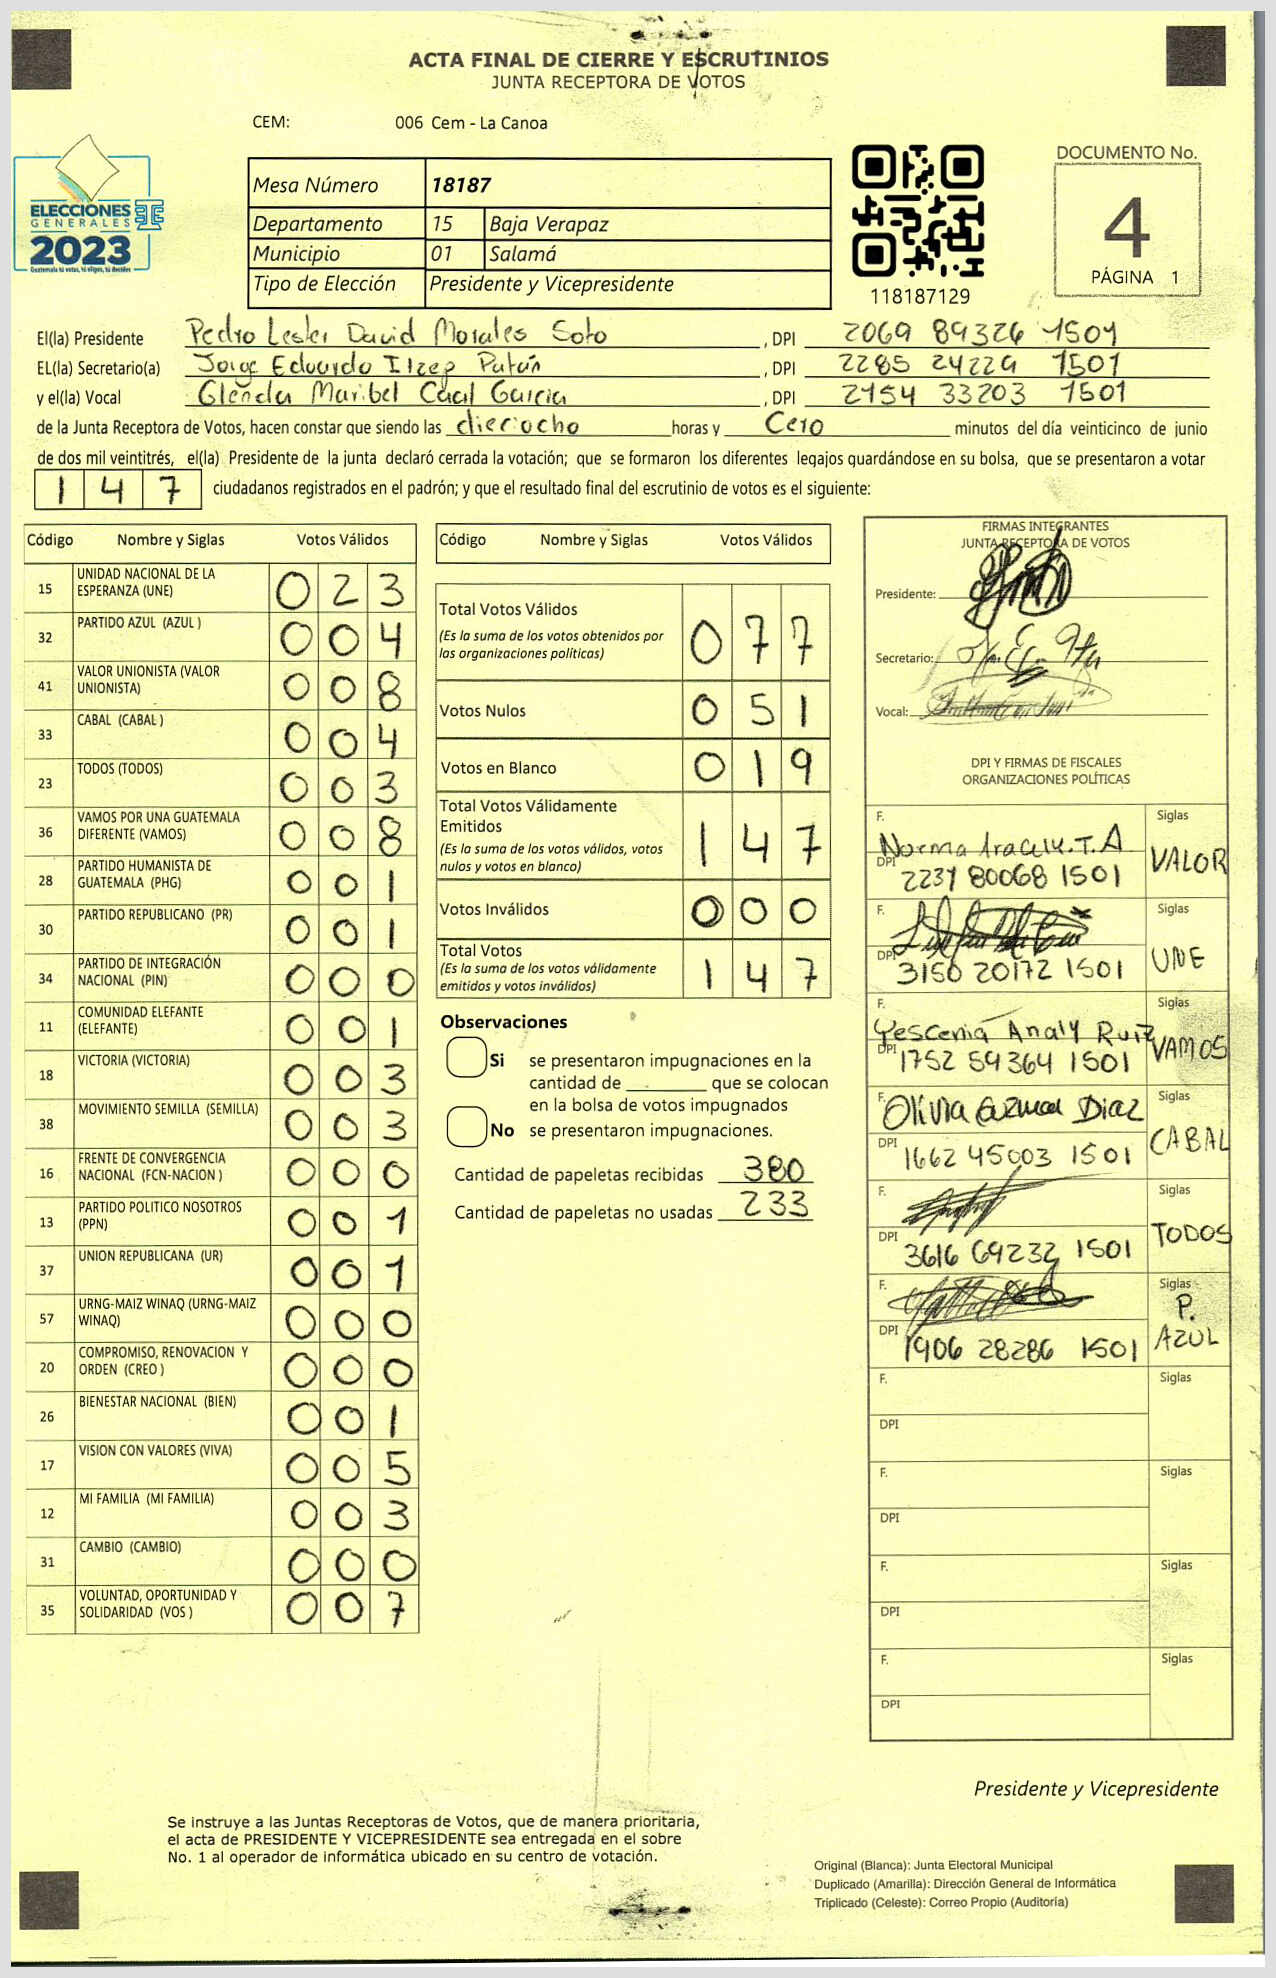 ACTA FINAL DE CIERRE Y ESCRUTINIOS
JUNTA RECEPTORA DE VOTOS
CEM: 006 Cem - La Canoa
ELECCIONES
GENERALES
2023
Guatemala tú votas, tú eliges, tú decides
Mesa Número 18187
Departamento 15 Baja Verapaz
Municipio 01 Salamá
Tipo de Elección Presidente y Vicepresidente
118187129
DOCUMENTO No.
4
PÁGINA 1
El(la) Presidente Pedro Lester David Morales Soto , DPI 2069 89326 1501
EL(la) Secretario(a) Jorge Eduardo Ilzep Patán , DPI 2285 24229 1501
y el(la) Vocal Glenda Maribel Caal Garcia , DPI 2154 33203 1501
de la Junta Receptora de Votos, hacen constar que siendo las dieciocho horas y Cero minutos del día veinticinco de junio
de dos mil veintitrés, el(la) Presidente de la junta declaró cerrada la votación; que se formaron los diferentes legajos guardándose en su bolsa, que se presentaron a votar
147 ciudadanos registrados en el padrón; y que el resultado final del escrutinio de votos es el siguiente:
Código Nombre y Siglas Votos Válidos
15 UNIDAD NACIONAL DE LA ESPERANZA (UNE) 023
32 PARTIDO AZUL (AZUL ) 004
41 VALOR UNIONISTA (VALOR UNIONISTA) 008
33 CABAL (CABAL ) 004
23 TODOS (TODOS) 003
36 VAMOS POR UNA GUATEMALA DIFERENTE (VAMOS) 008
28 PARTIDO HUMANISTA DE GUATEMALA (PHG) 001
30 PARTIDO REPUBLICANO (PR) 001
34 PARTIDO DE INTEGRACIÓN NACIONAL (PIN) 000
11 COMUNIDAD ELEFANTE (ELEFANTE) 001
18 VICTORIA (VICTORIA) 003
38 MOVIMIENTO SEMILLA (SEMILLA) 003
16 FRENTE DE CONVERGENCIA NACIONAL (FCN-NACION ) 000
13 PARTIDO POLITICO NOSOTROS (PPN) 001
37 UNION REPUBLICANA (UR) 001
57 URNG-MAIZ WINAQ (URNG-MAIZ WINAQ) 000
20 COMPROMISO, RENOVACION Y ORDEN (CREO ) 000
26 BIENESTAR NACIONAL (BIEN) 001
17 VISION CON VALORES (VIVA) 005
12 MI FAMILIA (MI FAMILIA) 003
31 CAMBIO (CAMBIO) 000
35 VOLUNTAD, OPORTUNIDAD Y SOLIDARIDAD (VOS ) 007
Código Nombre y Siglas Votos Válidos
Total Votos Válidos 077
(Es la suma de los votos obtenidos por
las organizaciones políticas)
Votos Nulos 051
Votos en Blanco 019
Total Votos Válidamente
Emitidos 147
(Es la suma de los votos válidos, votos
nulos y votos en blanco)
Votos Inválidos 000
Total Votos 147
(Es la suma de los votos válidamente
emitidos y votos inválidos)
Observaciones
Si se presentaron impugnaciones en la
cantidad de ________ que se colocan
en la bolsa de votos impugnados
No se presentaron impugnaciones.
Cantidad de papeletas recibidas 380
Cantidad de papeletas no usadas 233
FIRMAS INTEGRANTES
JUNTA RECEPTORA DE VOTOS
Presidente:
Secretario:
Vocal:
DPI Y FIRMAS DE FISCALES
ORGANIZACIONES POLÍTICAS
F. Norma Aracely. T.A Siglas VALOR
DPI 2237 80068 1501
F. Siglas UNE
DPI 3150 20172 1501
F. Yescenia Analy Ruiz Siglas VAMOS
DPI 1752 59364 1501
F. Olivia Guzman Diaz Siglas CABAL
DPI 1662 45003 1501
F. Siglas TODOS
DPI 3616 69232 1501
F. Siglas P. AZUL
DPI 1906 28286 1501
F. Siglas
DPI
F. Siglas
DPI
F. Siglas
DPI
F. Siglas
DPI
Presidente y Vicepresidente
Se instruye a las Juntas Receptoras de Votos, que de manera prioritaria,
el acta de PRESIDENTE Y VICEPRESIDENTE sea entregada en el sobre
No. 1 al operador de informática ubicado en su centro de votación.
Original (Blanca): Junta Electoral Municipal
Duplicado (Amarilla): Dirección General de Informática
Triplicado (Celeste): Correo Propio (Auditoría)